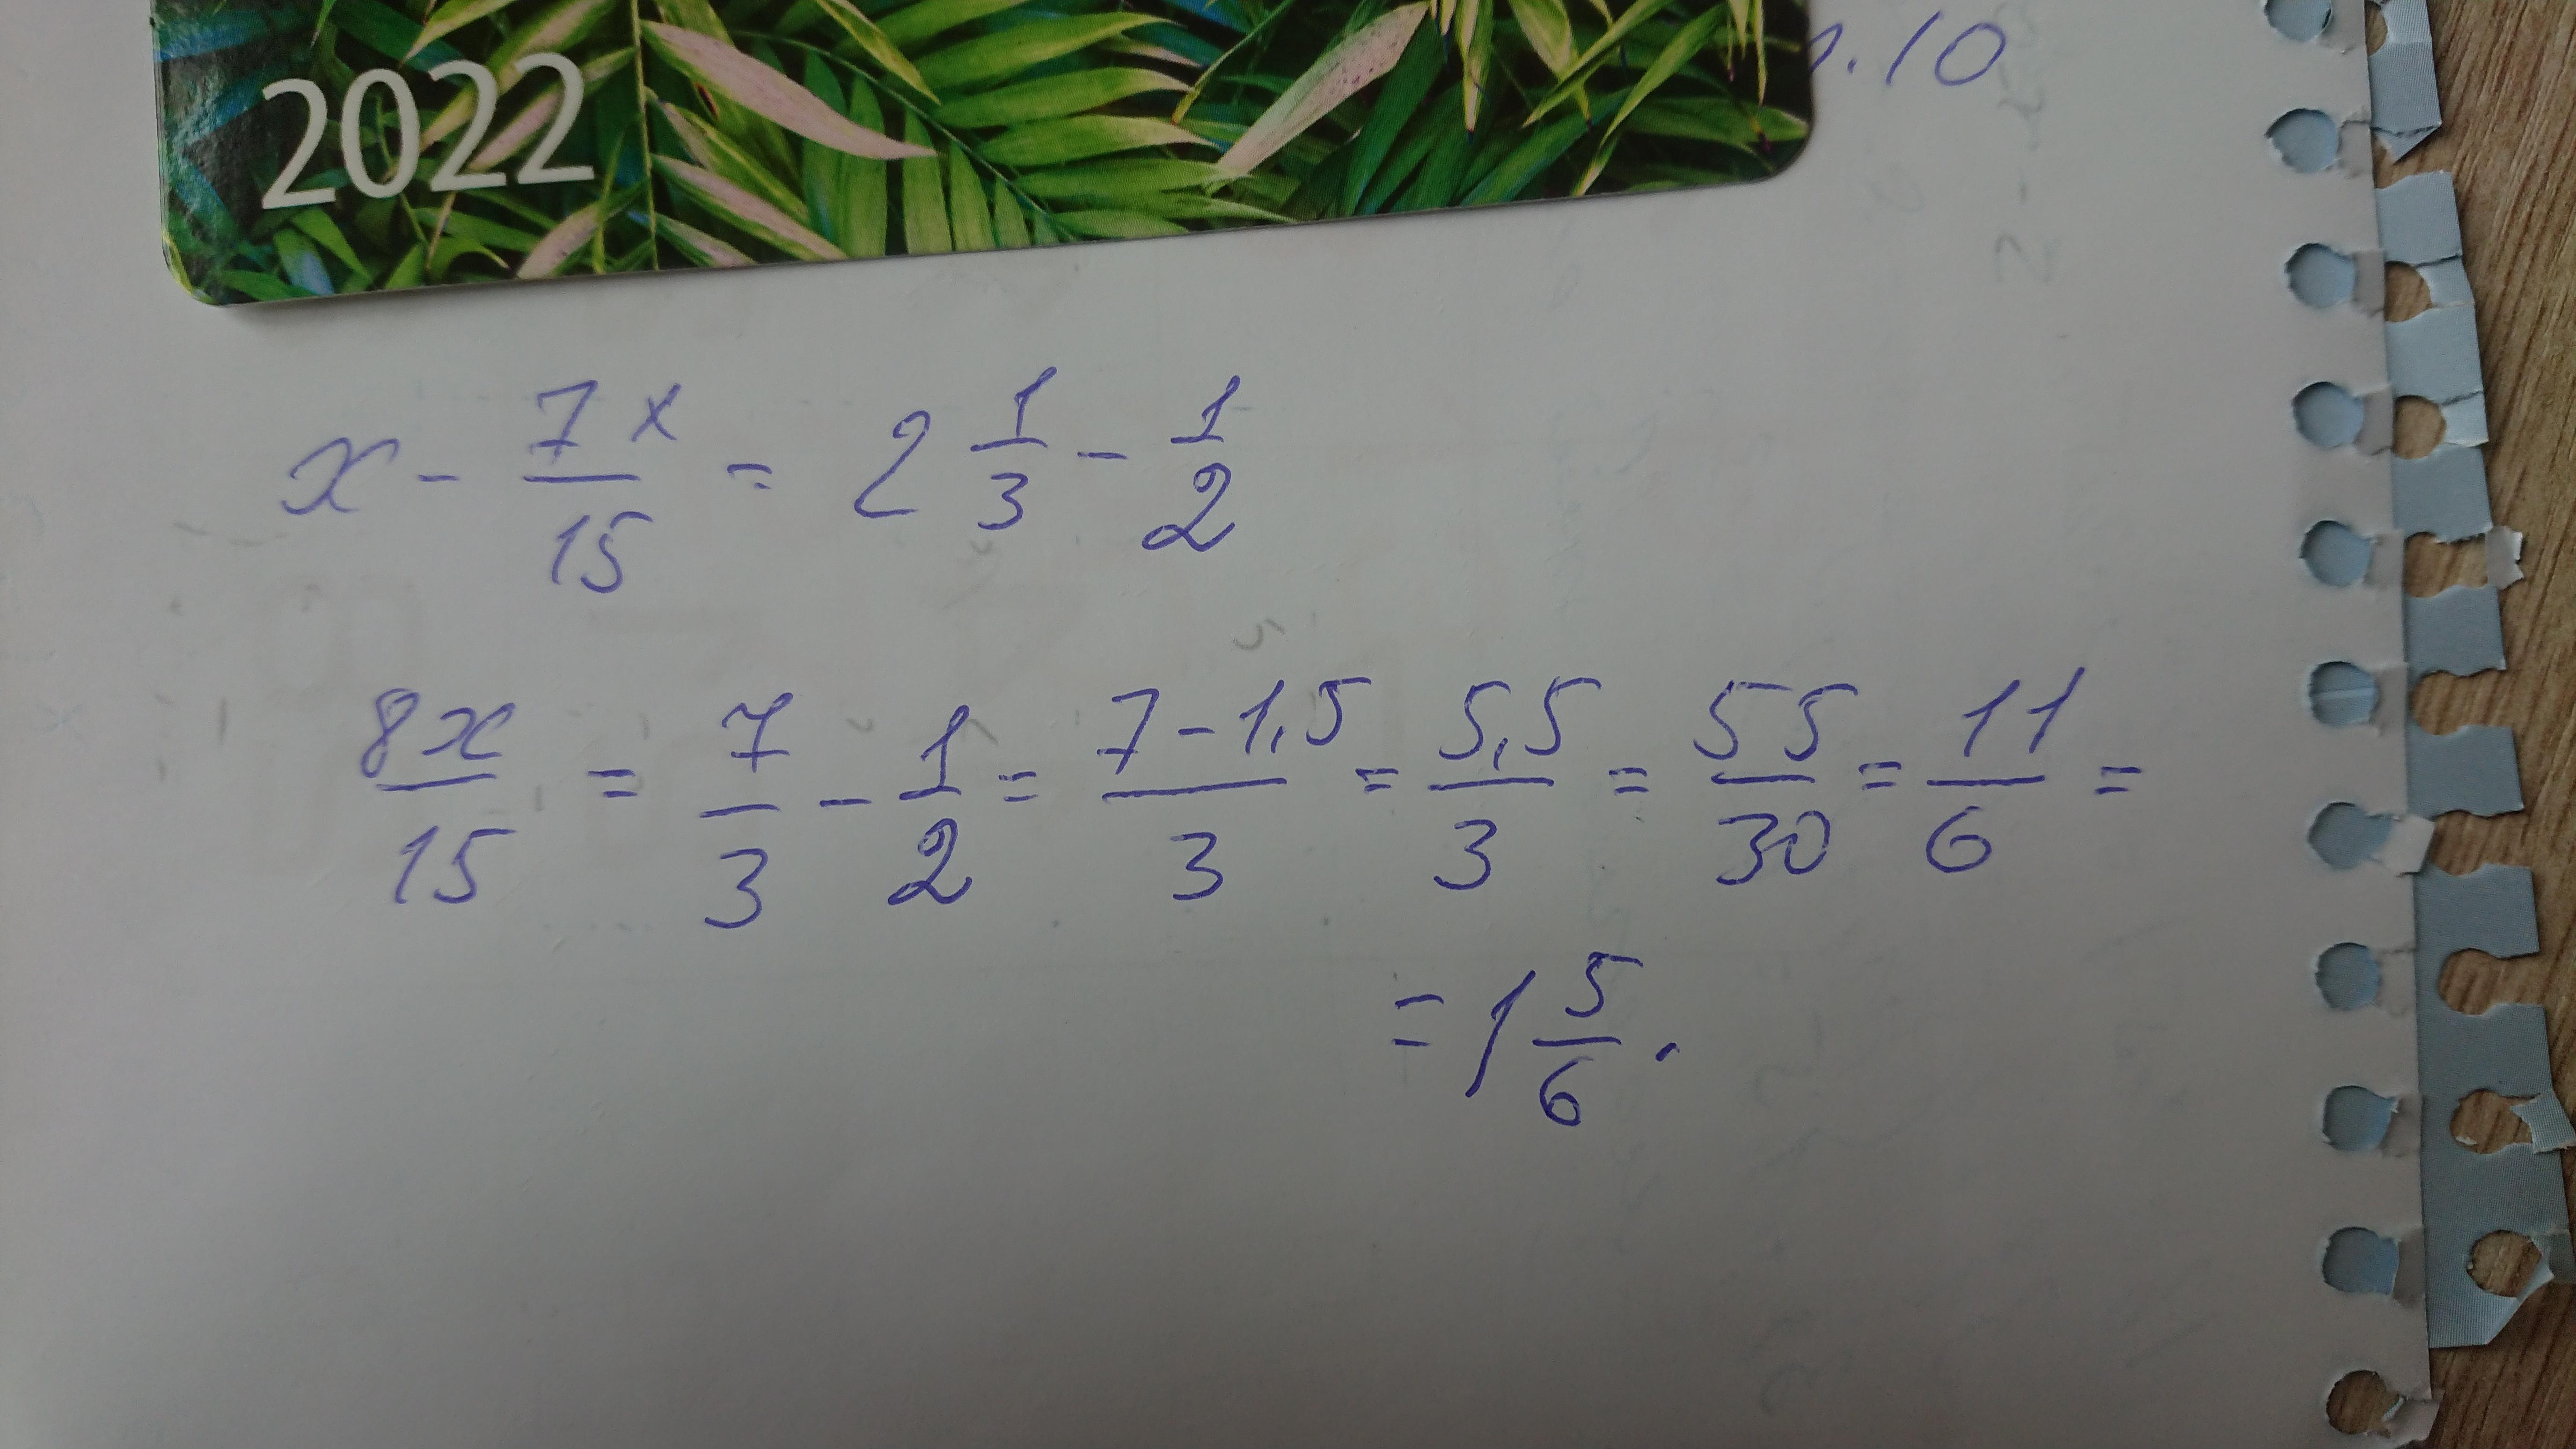 2022
.10
x - 7x/15 = 2 1/3 - 1/2
8x/15 = 7/3 - 1/2 = 7-1,5/3 = 5,5/3 = 55/30 = 11/6 =
= 1 5/6.